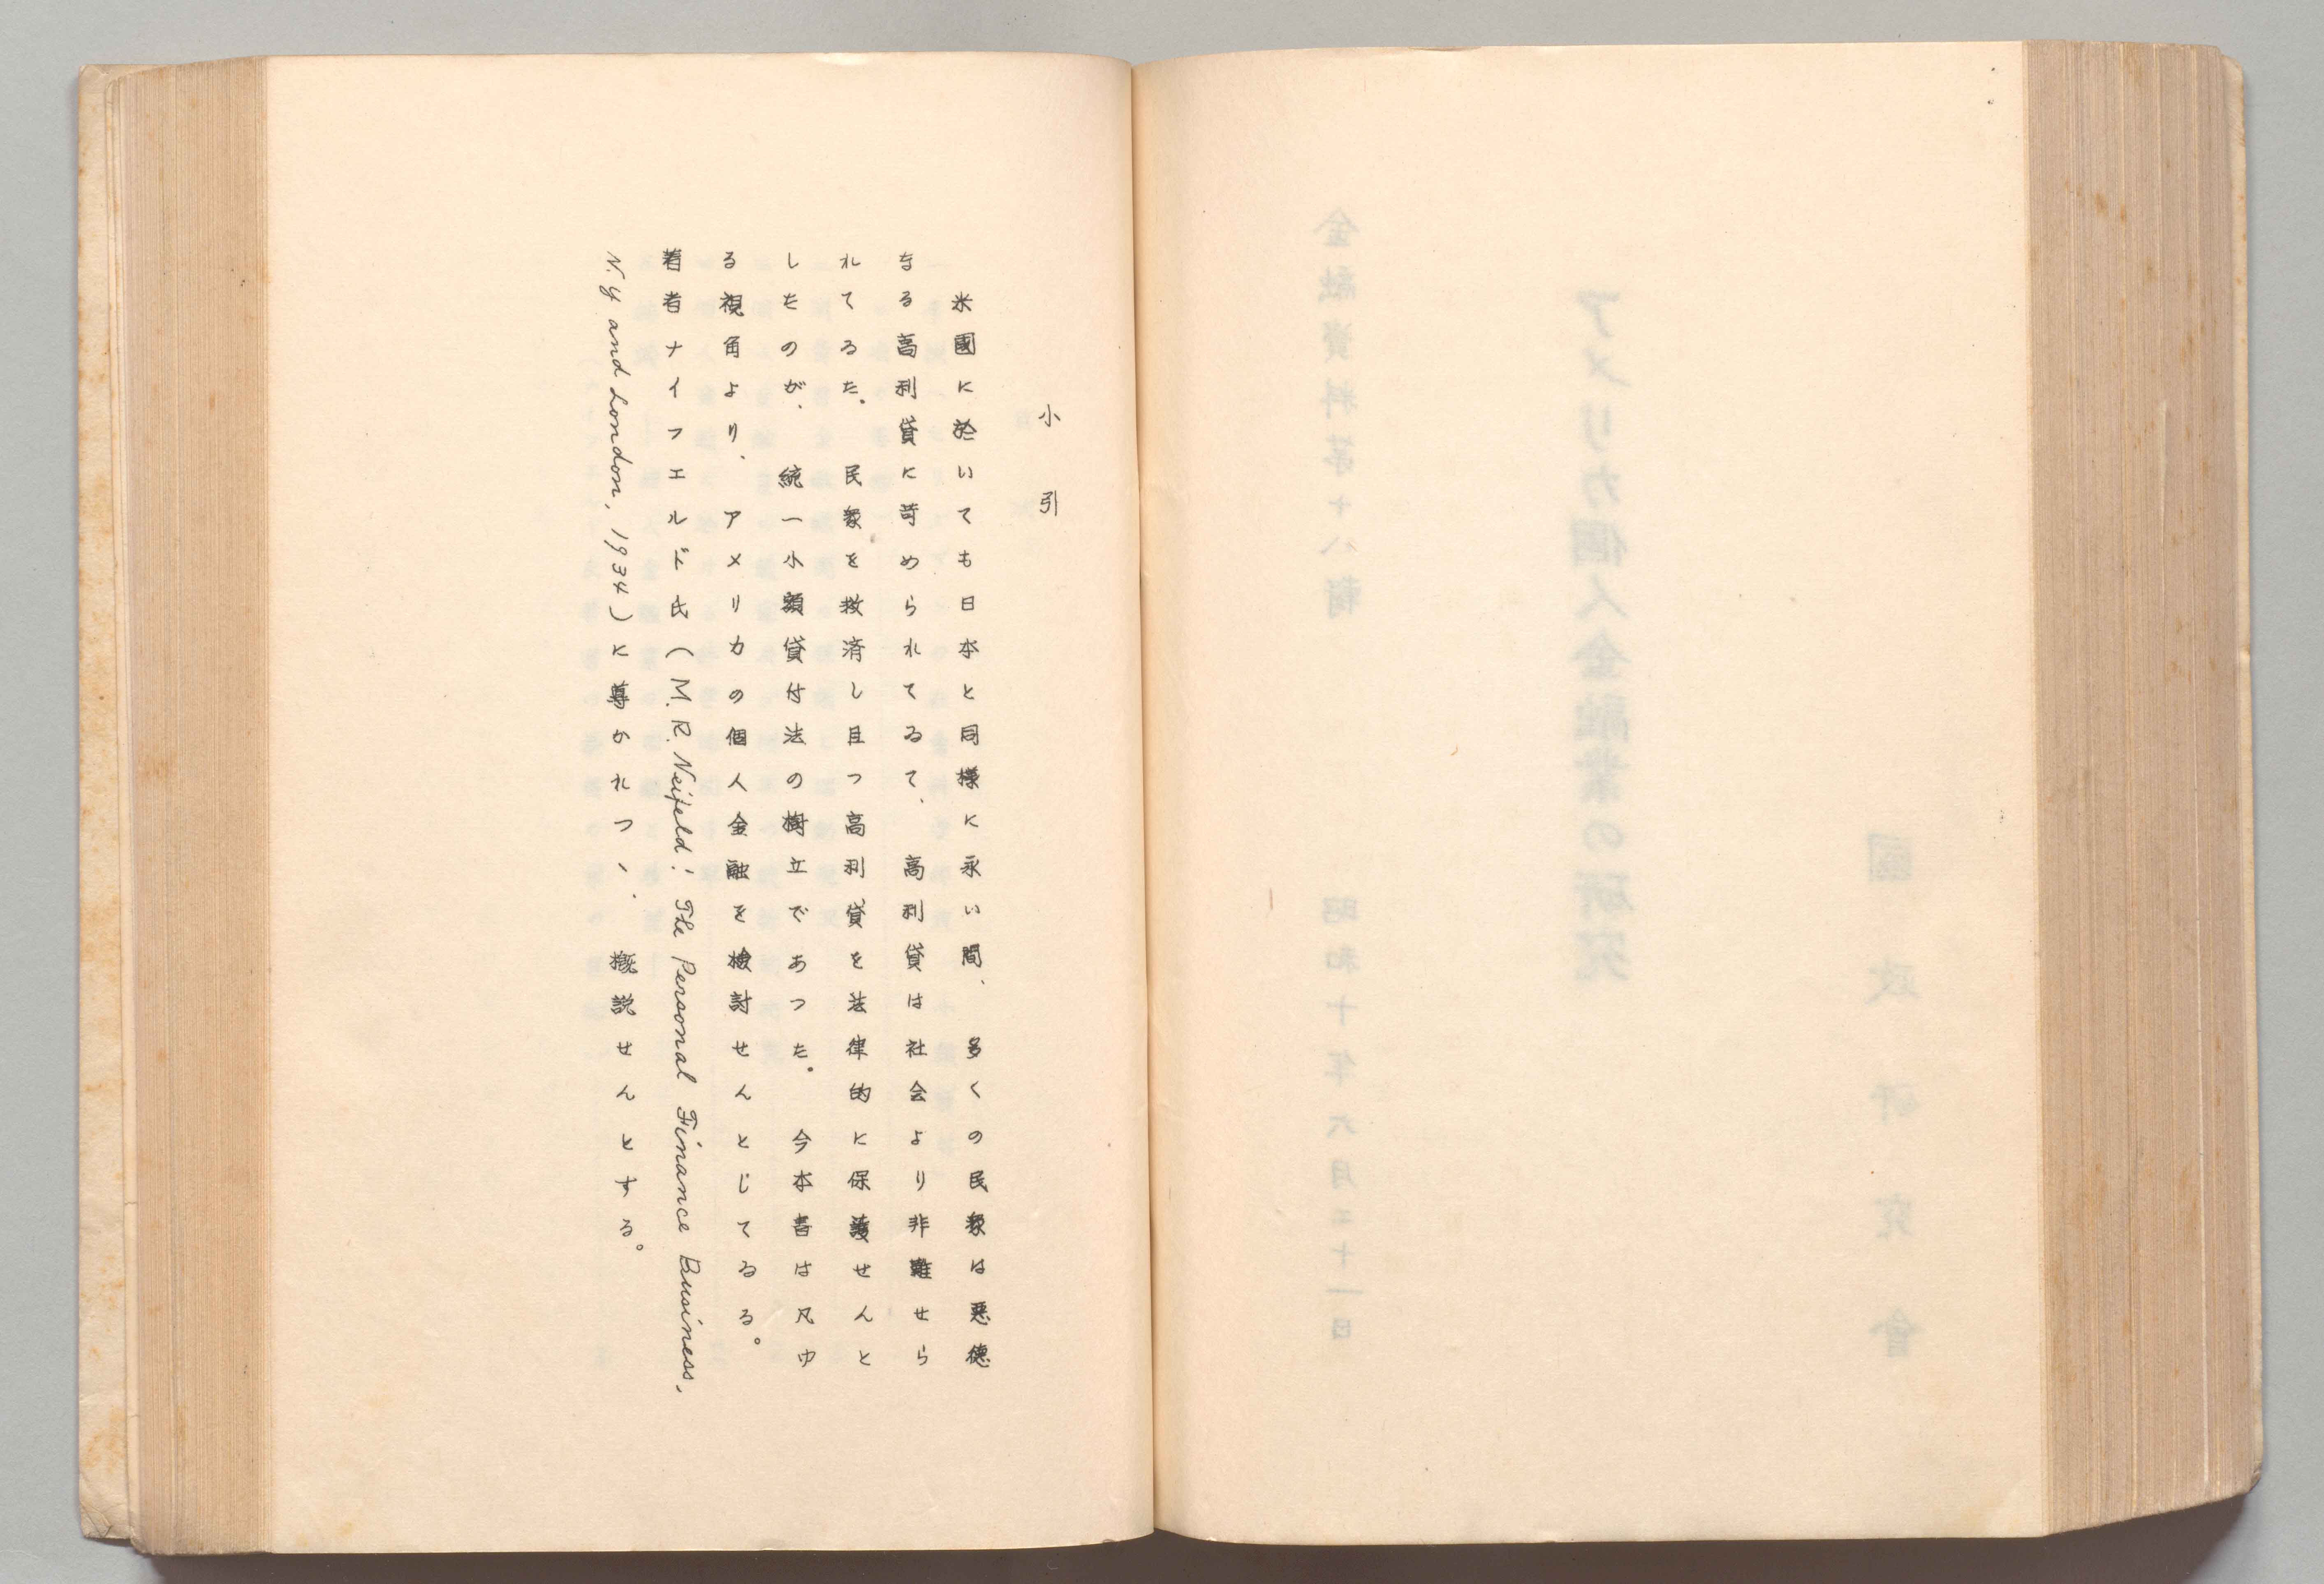 金融資料第十八輯
昭和十年六月二十一日
アメリカ個人金融業の研究
國政研究會
小引
米國に於いても日本と同様に永い間、多くの民衆は悪徳
なる高利貸に苛められてゐて、高利貸は社会より非難せら
れてゐた。民衆を救済し且つ高利貸を法律的に保護せんと
したのが、統一小額貸付法の樹立であつた。今本書は凡ゆ
る視角より、アメリカの個人金融を検討せんとしてゐる。
著者ナイフエルド氏(M. R. Neifeld: The Personal Finance Business,
N.Y and London, 1934)に導かれつゝ、概説せんとする。